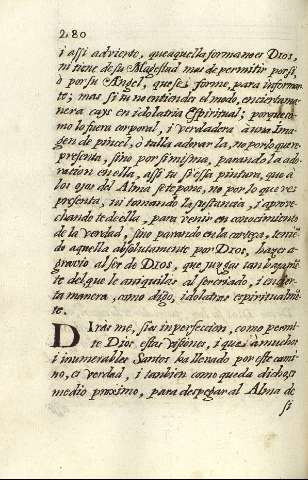 280
i assi advierto, que aquella forma no es DIOS,
ni tiene de su Magestad mas de permitir por si,
ò por su Angel, que se forme, para informar
te; mas si tu no entiendes el modo, en cierta ma
nera cays en idolatria Espiritual; porque co
mo lo fuera corporal, i verdadera à una Ima
gen de pincel, ò talla adorarla, no por lo que re
presenta, sino por si misma, parando la ado
racion en ella, assi tu si essa pintura, que à
los ojos del Alma se te pone, no por lo que re
presenta, ni tomando la sustancia, i aprove
chandote de ella, para venir en conocimiento
de la verdad, sino parando en la corteça, tenien
do aquella absolutamente por DIOS, hazes a
gravio al ser de DIOS, que juzgas tan baxamẽ
te del que le aniquilas al ser criado, i en cier
ta manera, como digo, idolatras espiritualmẽ
te.
DIras me, si es inperfeccion, como permi
te Dios estas visiones, i que à muchos
i inumerables Santos ha llevado por este cami
no, es verdad, i tanbien como queda dicho es
medio proximo, para despegar al Alma de
si